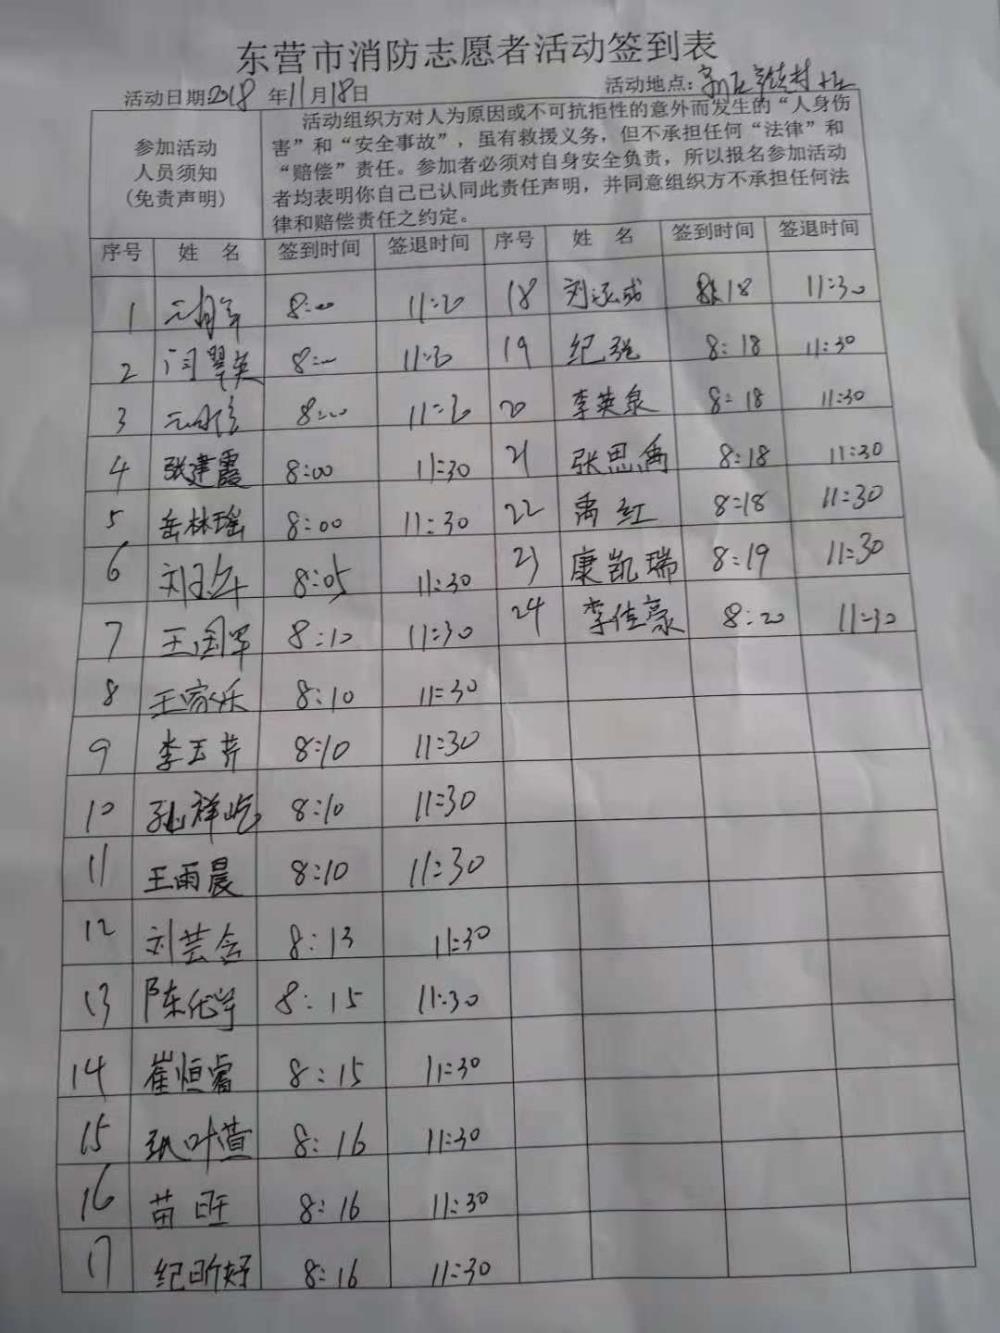 东营市消防志愿者活动签到表
活动日期2018年11月18日 活动地点:
参加活动
人员须知
(免责声明)
活动组织方对人为原因或不可抗拒性的意外而发生的“人身伤
害”和“安全事故”，虽有救援义务，但不承担任何“法律”和
“赔偿”责任。参加者必须对自身安全负责，所以报名参加活动
者均表明你自己已认同此责任声明，并同意组织方不承担任何法
律和赔偿责任之约定。
序号 姓 名 签到时间 签退时间 序号 姓 名 签到时间 签退时间
1 8:00 11:30 18 8:18 11:30
2 闫翠英 8:00 11:30 19 纪强 8:18 11:30
3 8:00 11:30 20 李英泉 8:18 11:30
4 张建霞 8:00 11:30 21 张思禹 8:18 11:30
5 岳林瑶 8:00 11:30 22 禹红 8:18 11:30
6 8:05 11:30 23 康凯瑞 8:19 11:30
7 王国军 8:10 11:30 24 李佳豪 8:20 11:30
8 王家乐 8:10 11:30
9 李玉芹 8:10 11:30
10 孔祥屹 8:10 11:30
11 王雨晨 8:10 11:30
12 刘芸含 8:13 11:30
13 8:15 11:30
14 崔恒睿 8:15 11:30
15 8:16 11:30
16 苗旺 8:16 11:30
17 纪昕妤 8:16 11:30